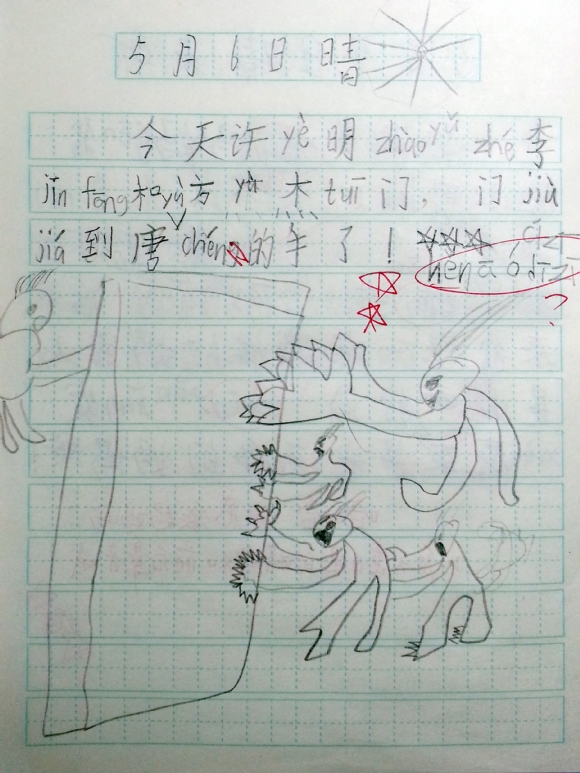 5月6日 晴
今天许yè明zhàoyǔzhé李
jīnfāng和yǔ方yǔ木tuī门,门jiù
jiá到唐chéng的手了!